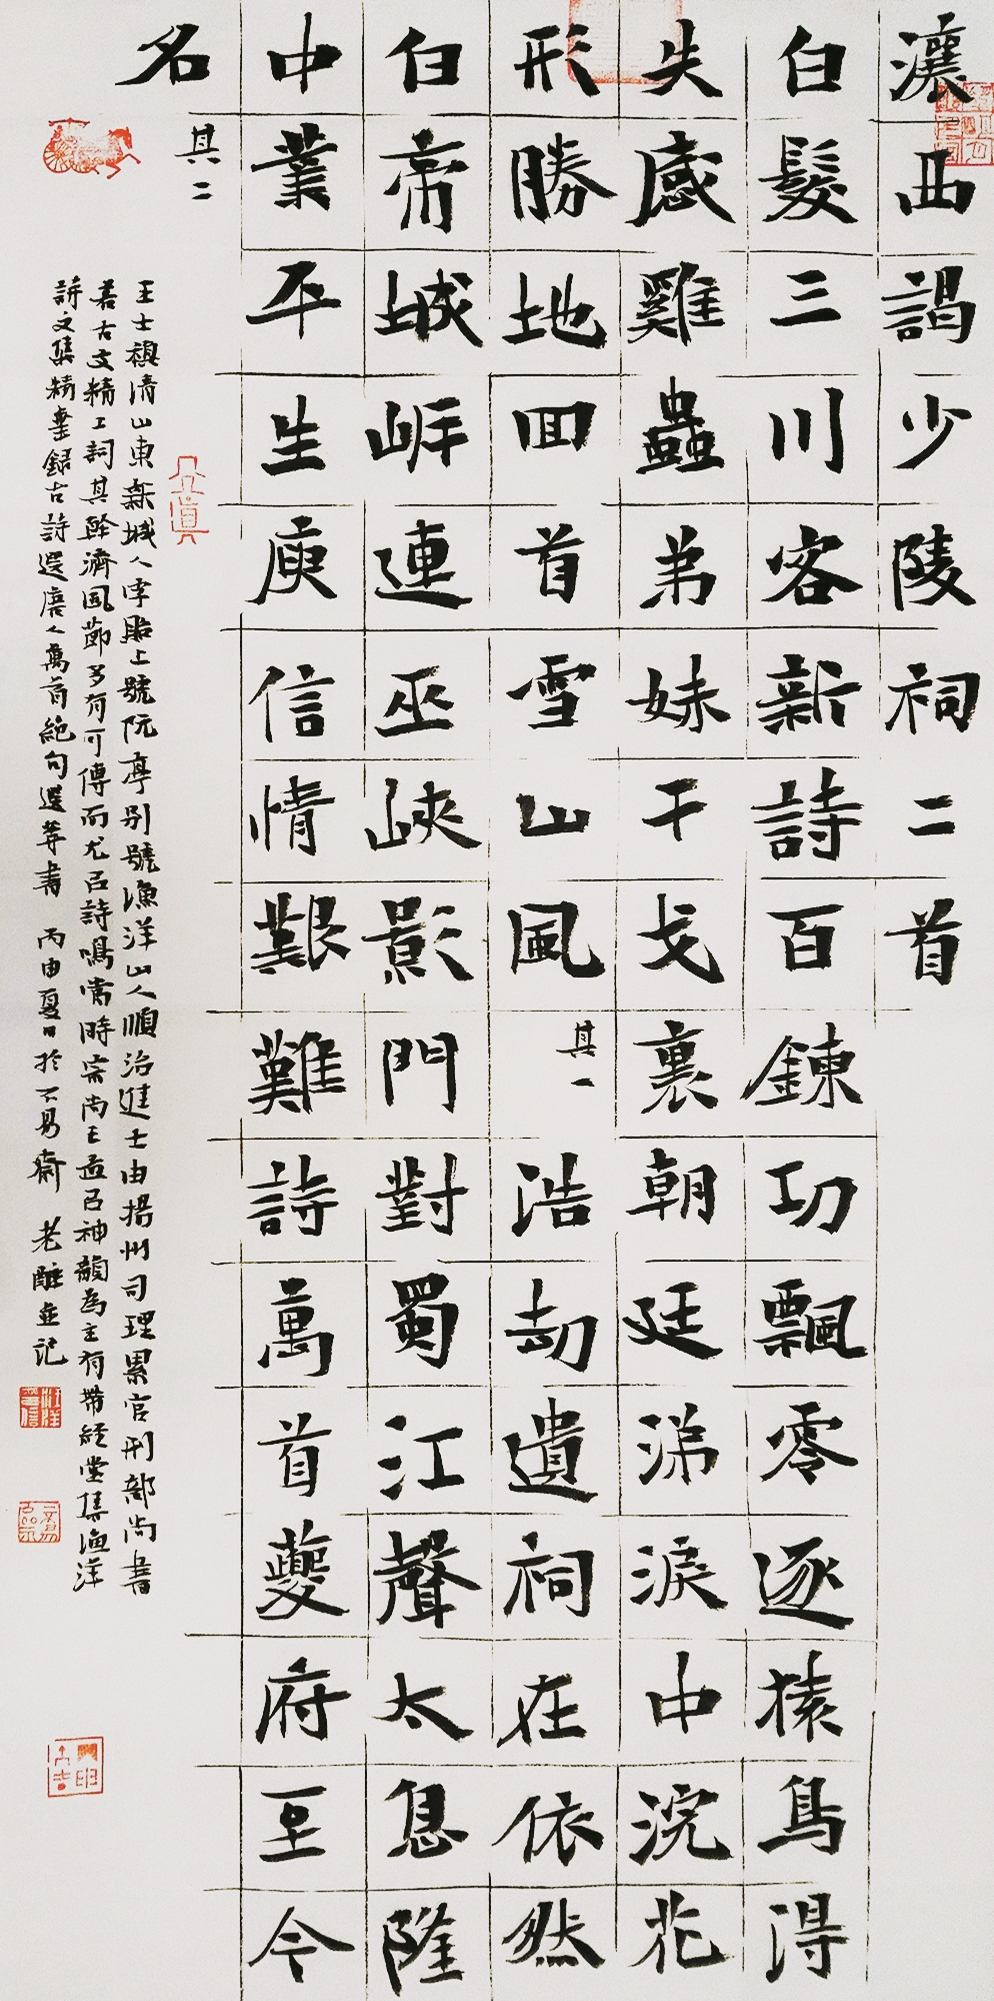 瀼西謁少陵祠二首
白髮三川客新詩百鍊功飄零逐猿鳥淂
失感雞蟲弟妹干戈裏朝廷涕淚中浣花
形勝地回首雪山風 其一 浩劫遺祠在依然
白帝城岈連巫峽影門對蜀江聲太息隆
中業平生庾信情艱難詩萬首夔府至今
名 其二
王士禛清山東新城人字貽上號阮亭别號漁洋山人順治進士由揚州司理累官刑部尚書
若古文精工詞其幹濟風節多有可傳而尤㠯詩鳴當時宗尚王孟㠯神韻為主有帶經堂集漁洋
詩文集精華録古詩選唐人萬首絶句選等書 丙申夏日於不易齋 老雕並記